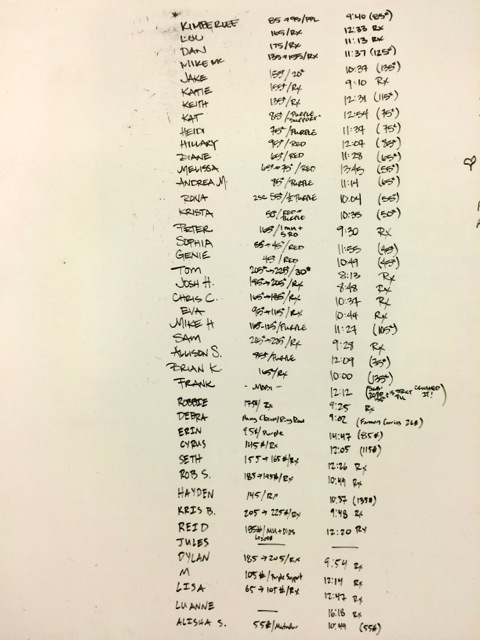 KIMBERLEE 85→95/PPL 9:40 (85#)
LOU 165/RX 12:33 RX
DAN 175/RX 11:13 RX
MIKE MC 135→155/RX 11:37 (125#)
JAKE 155#/20" 10:37 (135#)
KATIE 155#/RX 9:10 RX
KEITH 135#/RX 12:31 (115#)
KAT 85#/PURPLE SUPPORT 12:54 (75#)
HEIDI 75#/PURPLE 11:34 (75#)
HILLARY 95#/RED 12:07
DIANE 65#/RED 11:28 (65#)
MELISSA 65#→75#/RED 13:45 (55#)
ANDREA M. 75#/PURPLE 11:14 (65#)
RONA 55#/PURPLE 10:04 (55#)
KRISTA 50#/RED+PURPLE 10:35 (50#)
PETER 165#/ 9:30 RX
SOPHIA 55→45#/RED 11:55 (45#)
GENIE 45#/RED 10:49 (45#)
TOM 205#→225#/30" 8:13 RX
JOSH H. 195→205#/RX 8:48 RX
CHRIS C. 165→185/RX 10:37 RX
EVA 95→115#/RX 10:44 RX
MIKE H 115-125/PURPLE 11:27 (105#)
SAM 205→225/RX 9:28 RX
ALLISON S. 85#/PURPLE 12:09 (75#)
BRIAN K 165#/RX 10:00 (135#)
FRANK 12:12
ROBBIE 175#/RX 9:25 RX
DEBRA Hang Cleans/Ring Rows 9:02 (Farmers Carries 26#)
ERIN 95#/Purple 14:47 (85#)
CYRUS 145#/RX 12:05 (115#)
SETH 155→165#/RX 12:26 RX
ROB S. 185→195#/RX 10:49 RX
HAYDEN 145/RX 10:37 (135#)
KRIS B. 205→225#/RX 9:48 RX
REID 185#/ 12:20 RX
JULES — —
DYLAN 185→205/RX 9:54 RX
M 105#/Purple Support 12:14 RX
LISA 65→105#/RX 12:47 RX
LUANNE — 16:18 RX
ALISHA S. 55#/ 10:49 (55#)